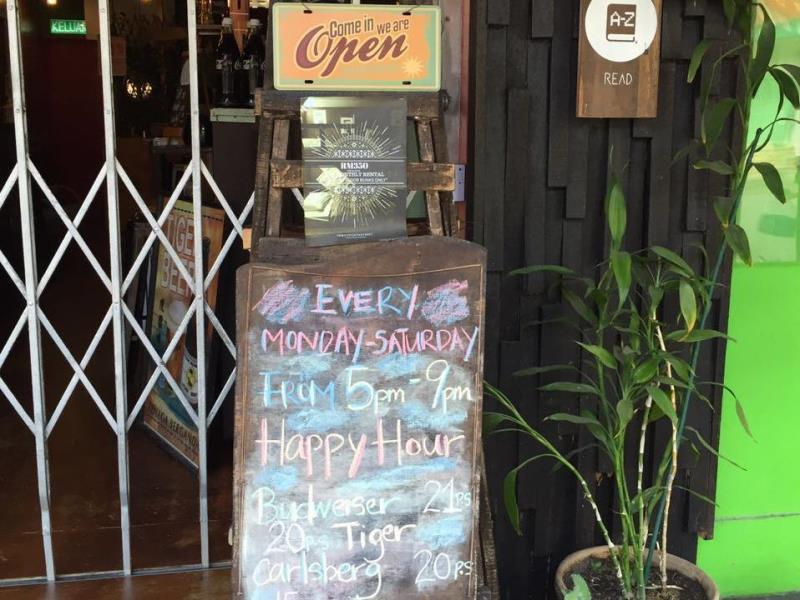 KELUAR
Come in we are
Open
A-Z
READ
RM350
MONTHLY RENTAL
TIGER
BEER
EVERY
MONDAY-SATURDAY
FROM 5pm - 9pm
Happy Hour
Budweiser 21ps
20ps Tiger
Carlsberg 20ps